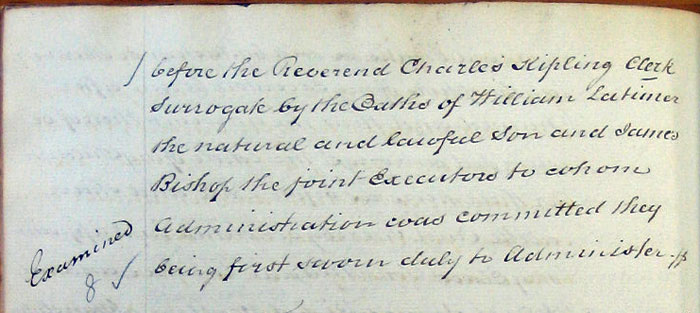 before the Reverend Charles Kipling Clerk
Surrogate by the Oaths of William Latimer
the natural and lawful Son and James
Bishop the joint Executors to whom
Administration was committed they
being first sworn duly to Administer
Examined